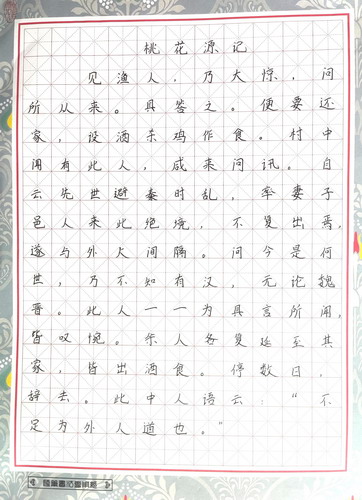 桃花源记
见渔人，乃大惊，问
所从来。具答之。便要还
家，设酒杀鸡作食。村中
闻有此人，咸来问讯。自
云先世避秦时乱，率妻子
邑人来此绝境，不复出焉，
遂与外人间隔。问今是何
世，乃不知有汉，无论魏
晋。此人一一为具言所闻，
皆叹惋。余人各复延至其
家，皆出酒食。停数日，
辞去。此中人语云：“不
足为外人道也。”